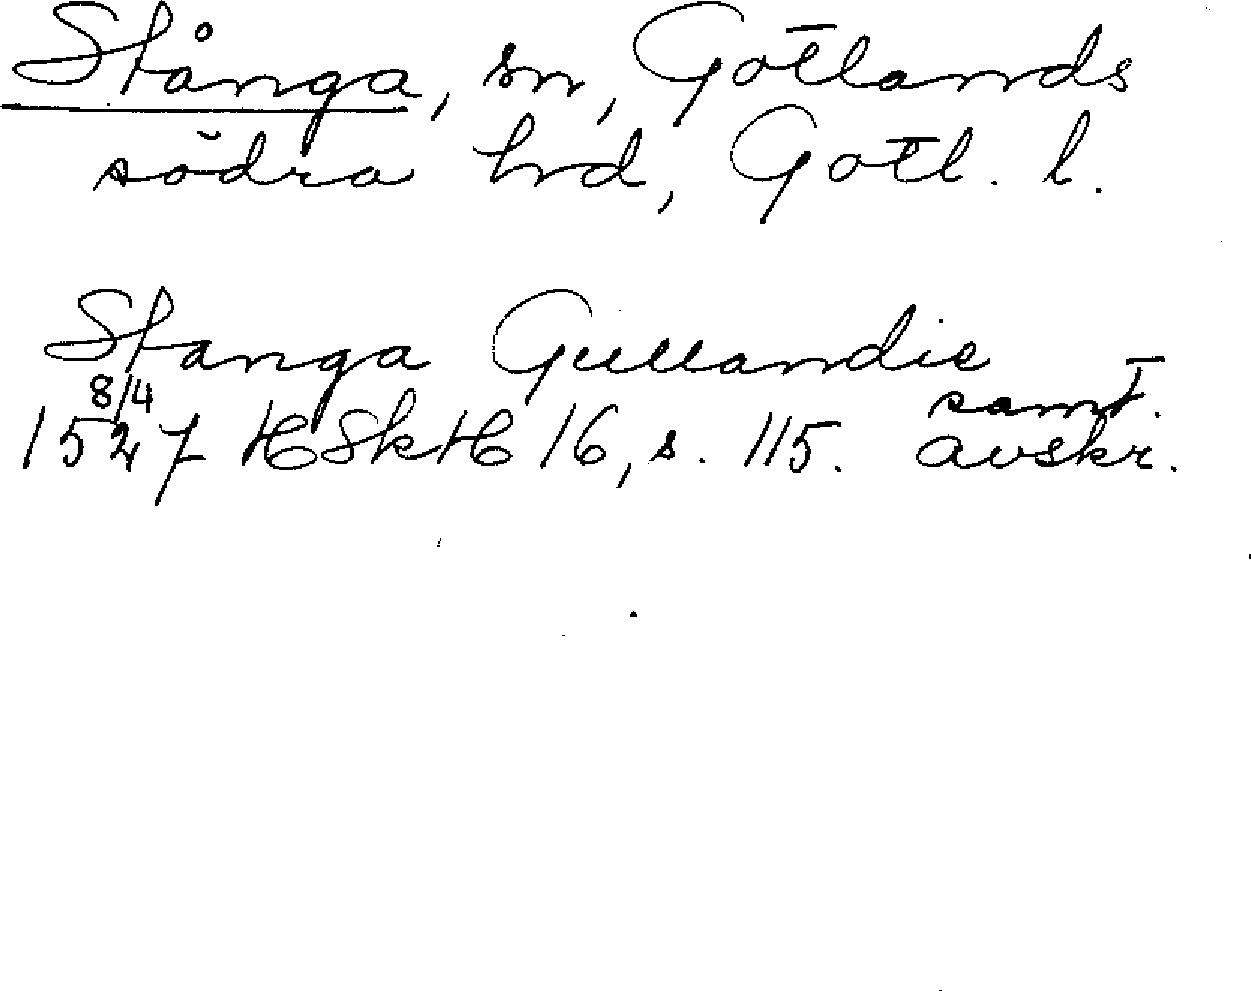 Stånga, sn, Gotlands
södra hd, Gotl. l.
Stanga Gullandie
8/4 samt.
1527 HSkH 16, s. 115. avskr.